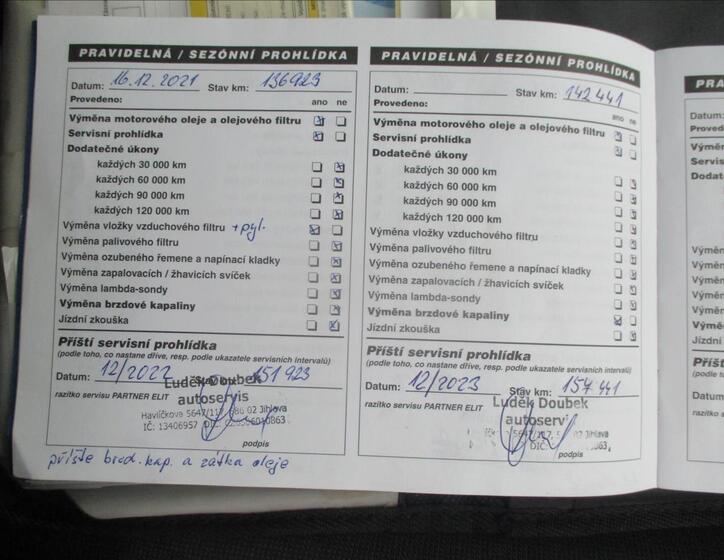 PRAVIDELNÁ / SEZÓNNÍ PROHLÍDKA
Datum: 16.12.2021 Stav km: 136923
Provedeno: ano ne
Výměna motorového oleje a olejového filtru
Servisní prohlídka
Dodatečné úkony
každých 30 000 km
každých 60 000 km
každých 90 000 km
každých 120 000 km
Výměna vložky vzduchového filtru +pyl.
Výměna palivového filtru
Výměna ozubeného řemene a napínací kladky
Výměna zapalovacích / žhavicích svíček
Výměna lambda-sondy
Výměna brzdové kapaliny
Jízdní zkouška
Příští servisní prohlídka
(podle toho, co nastane dříve, resp. podle ukazatele servisních intervalů)
Datum: 12/2022 151923
Luděk Doubek
autoservis
razítko servisu PARTNER ELIT
Havlíčkova 5647/117, 586 02 Jihlava
IČ: 13406957
podpis
příště brzd. kap. a zátka oleje
PRAVIDELNÁ / SEZÓNNÍ PROHLÍDKA
Datum: Stav km: 142441
Provedeno: ano ne
Výměna motorového oleje a olejového filtru
Servisní prohlídka
Dodatečné úkony
každých 30 000 km
každých 60 000 km
každých 90 000 km
každých 120 000 km
Výměna vložky vzduchového filtru
Výměna palivového filtru
Výměna ozubeného řemene a napínací kladky
Výměna zapalovacích / žhavicích svíček
Výměna lambda-sondy
Výměna brzdové kapaliny
Jízdní zkouška
Příští servisní prohlídka
(podle toho, co nastane dříve, resp. podle ukazatele servisních intervalů)
Datum: 12/2023 Stav km: 157441
Luděk Doubek
razítko servisu PARTNER ELIT
autoservis
02 Jihlava
DIČ:
podpis
PRA
Datum:
Proved
Výměn
Servis
Dodat
Výměn
Výměn
Výměn
Výměn
Výměn
Výměn
Jízdní
Příšt
(podle to
Datum
razítko